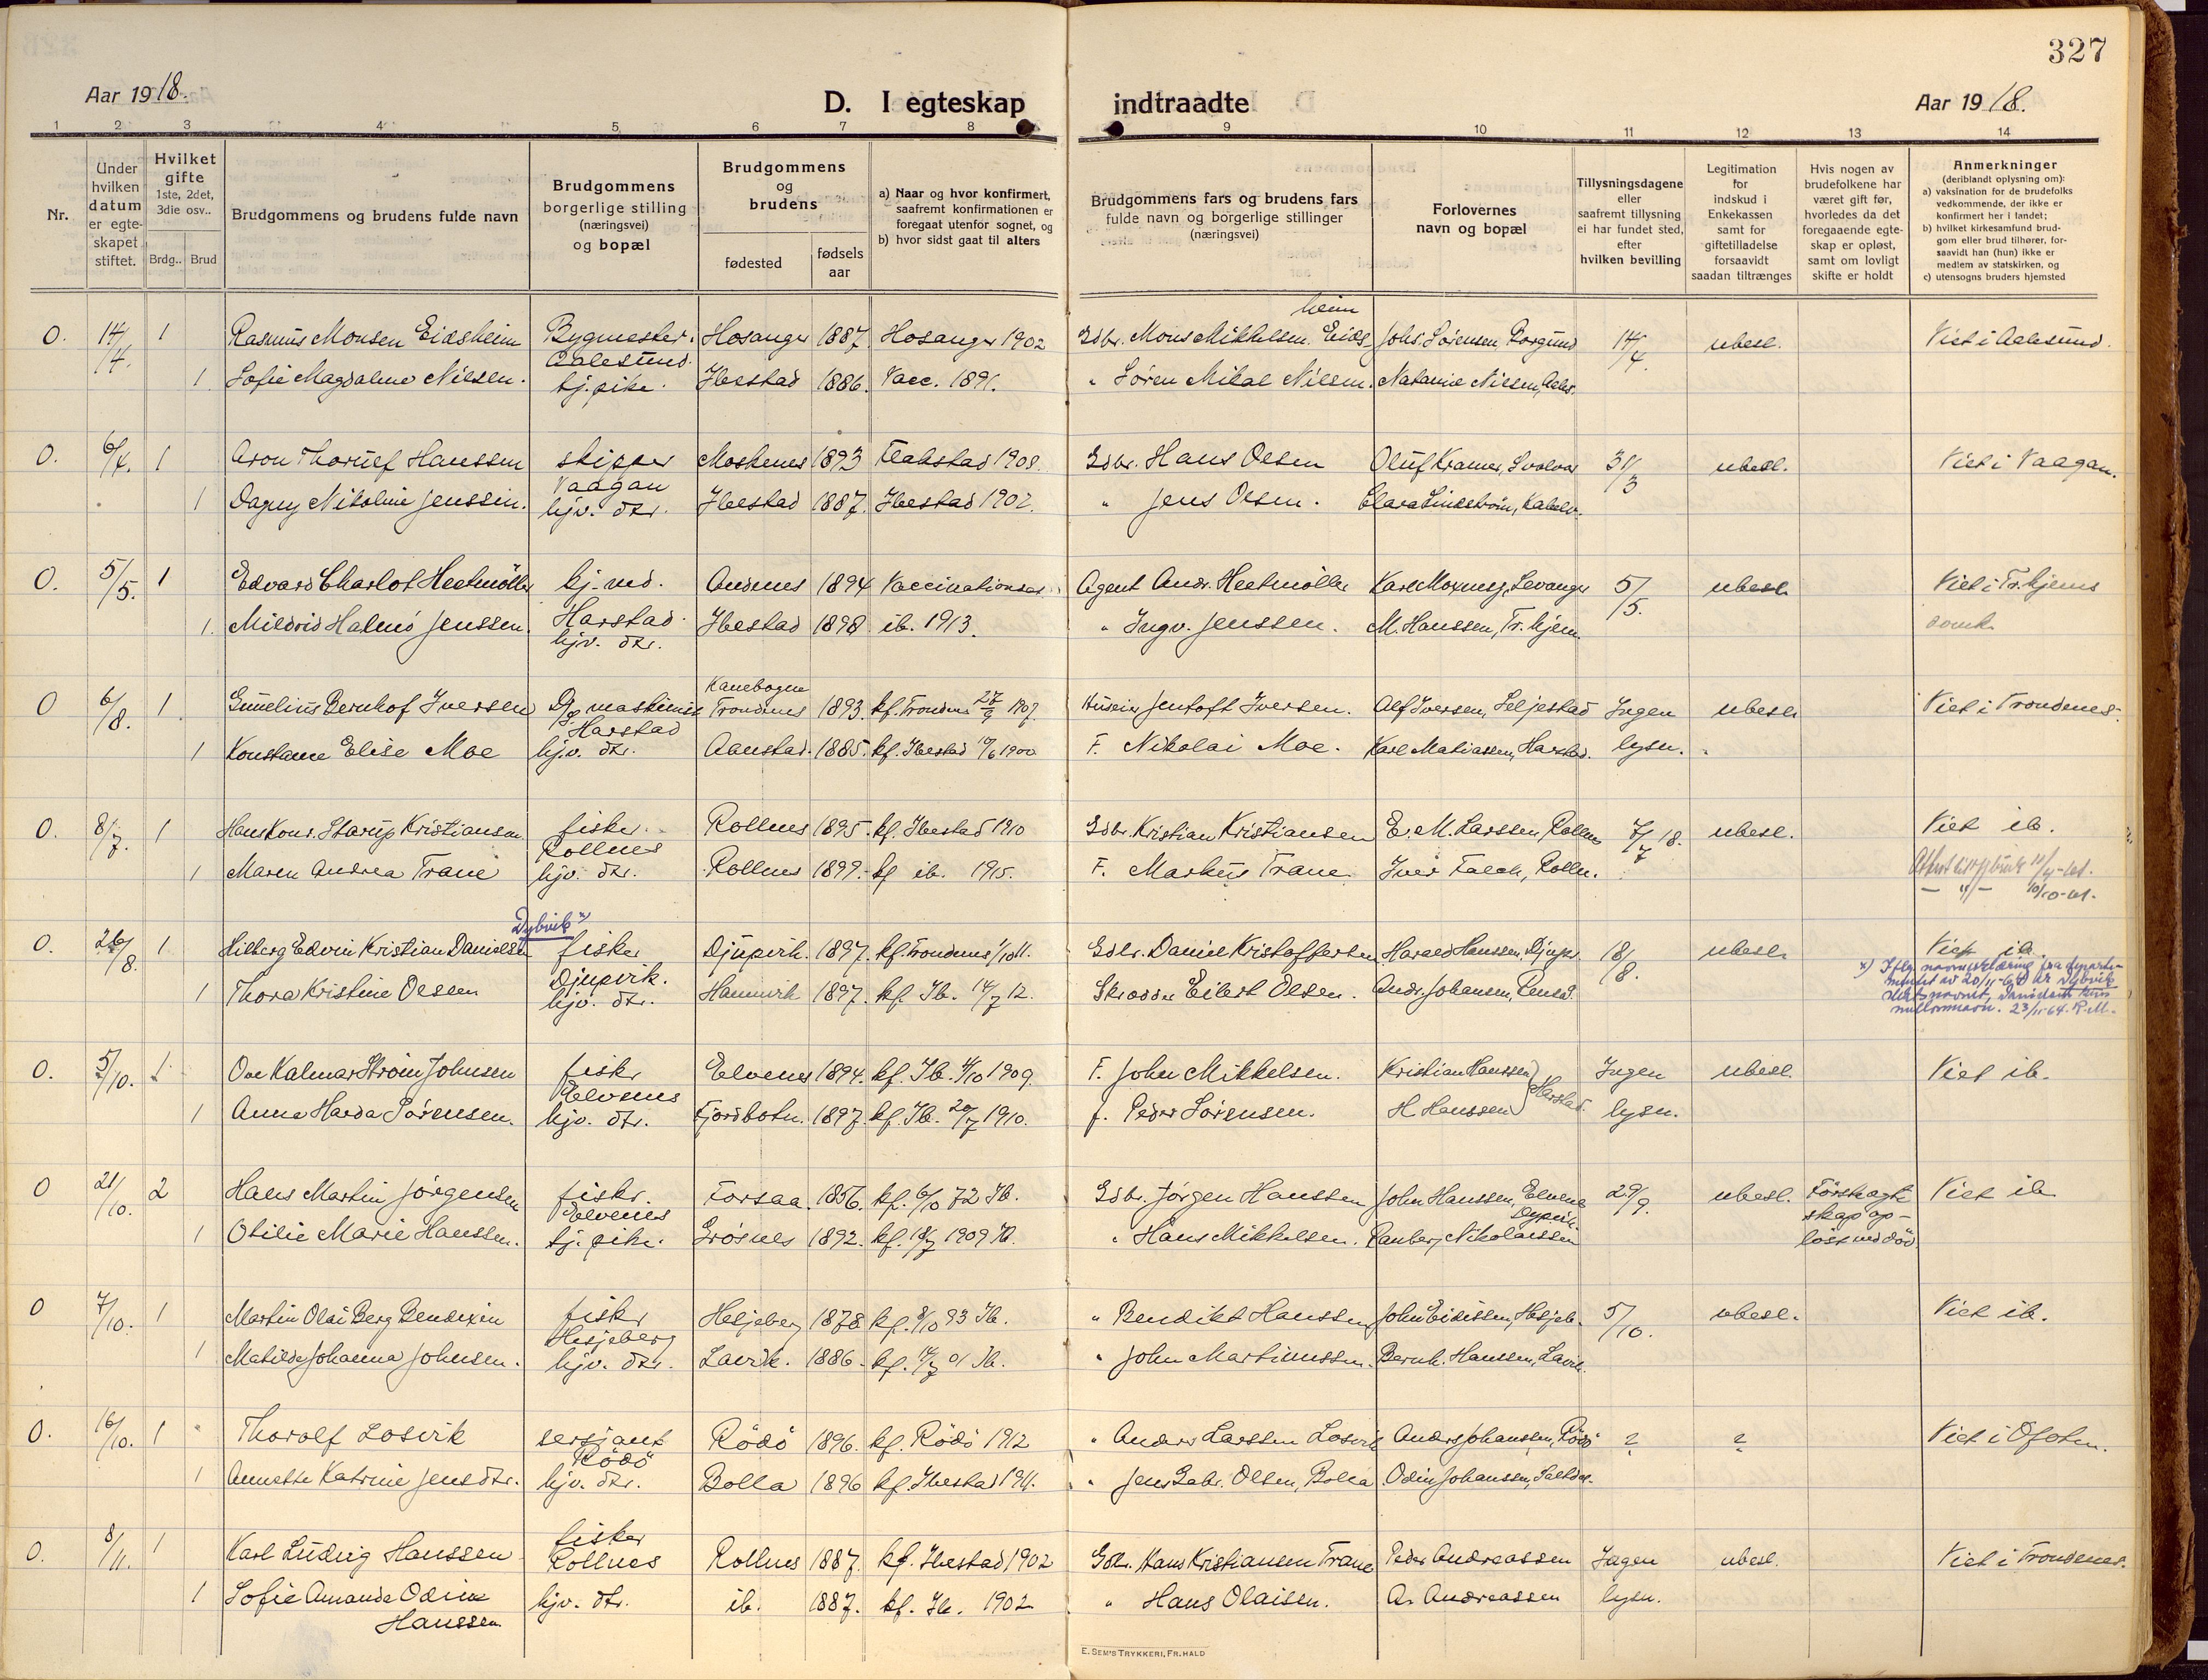 327
Aar 1918.
D. I egteskap indtraadte
Aar 1918.
1 2 3 4 5 6 7 8 9 10 11 12 13 14
Nr.
Under hvilken datum er egteskapet stiftet.
Hvilket gifte 1ste, 2det, 3die osv..
Brdg.. Brud
Brudgommens og brudens fulde navn
Brudgommens borgerlige stilling (næringsvei) og bopæl
Brudgommens og brudens
fødested
fødsels aar
a) Naar og hvor konfirmert, saafremt konfirmationen er foregaat utenfor sognet, og
b) hvor sidst gaat til alters
Brudgommens fars og brudens fars fulde navn og borgerlige stillinger (næringsvei)
Forlovernes navn og bopæl
Tillysningsdagene eller saafremt tillysning ei har fundet sted, efter hvilken bevilling
Legitimation for indskud i Enkekassen samt for giftetilladelse forsaavidt saadan tiltrænges
Hvis nogen av brudefolkene har været gift før, hvorledes da det foregaaende egteskap er opløst, samt om lovligt skifte er holdt
Anmerkninger
(deriblandt oplysning om):
a) vaksination for de brudefolks vedkommende, der ikke er konfirmert her i landet;
b) hvilket kirkesamfund brudgom eller brud tilhører, forsaavidt han (hun) ikke er medlem av statskirken, og
c) utensogns bruders hjemsted
0. 14/4. 1 Rasmus Monsen Eidsheim Bygmester. Aalesund. Hosanger 1887 Hosanger 1902 Gdbr. Mons Mikkelsen Eidsheim Johs. Sørensen, Borgund 14/4. ubesl. Viet i Aalesund.
1. Sofie Magdalene Nilsen. tj. pike. Ibestad 1886. Vacc. 1891. " Søren Mikal Nilsen. Natanie Nilsen, Aales.
0. 6/4. 1 Aron Thorulf Hanssen skipper Vaagan Moskenes 1893 Flakstad 1908. Gdbr. Hans Olsen Oluf Kramer, Svolvær 31/3 ubesl. Viet i Vaagan.
1 Dagny Nikoline Jenssen. hjv. dtr. Ibestad 1887. Ibestad 1902. " Jens Olsen. Clara Lindstrøm, Kabelv.
0. 5/5. 1 Edvard Charlot Heetmøller tj. md. Harstad. Andenes 1894 Vaccinationsat. Agent Andr. Heetmøller Karl Moxnes, Levanger 5/5. ubesl. Viet i Tr.hjems domk.
1. Mildrid Halmö Jenssen. hjv. dtr. Ibestad 1898 ib. 1913. " Ingv. Jenssen. M. Hanssen, Tr.hjem.
0 6/8. 1 Emelius Bernhof Iversen maskinist Harstad Kanebogen Trondenes 1893. kf. Trondenes 27/9 1907. Jentoft Iversen. Alf Iversen, Seljestad Ingen ubesl. Viet i Trondenes.
1 Konstanse Elise Moe hjv. dtr. Aanstad. 1885. kf. Ibestad 17/6 1900 F. Nikolai Moe. Karl Matiassen, Harstad. lysn.
0. 8/7. 1 Hans Konr. Starup Kristiansen fisker. Rollnes Rollnes 1895. kf. Ibestad 1910 Gdbr. Kristian Kristiansen E. M. Larssen, Rollnes 7/7 18. ubesl. Viet ib.
1 Maren Andrea Trane hjv. dtr. Rollnes 1899. kf ib. 1915. F. Markus Trane Iver Falch, Rolln.
0. 26/8. 1 Hilberg Edvin Kristian Danielsen Dybvik x) fisker Djupvik. Djupvik. 1897. kf. Trondenes 1/10 11. Gdbr. Daniel Kristoffersen Harald Hanssen, Djupv. 18/8. ubesl. Viet ib.
x) Iflg. navneerklæring fra departementet av 20/11-64 er Dybvik slektsnavnet, Danielsen kun mellomnavn. 23/11-64. P.M.
1 Thora Kristine Olsen hjv. dtr. Hamnvik 1897. kf. Ib. 14/7 12. Skrædder Eilert Olsen. Andr. Johansen, Rensd.
0. 5/10. 1 Ove Kalmar Strøm Johnsen fisker Elvenes Elvenes 1894. kf. Ib. 4/10 1909. F. John Mikkelsen. Kristian Hanssen Ingen ubesl. Viet ib.
1 Anna Harda Sørensen. hjv. dtr. Fjordbotn. 1897. kf. Ib. 20/7 1910. f. Peder Sørensen. H Hanssen Harstad. lysn.
0 21/10. 2 Hans Martin Jørgensen fisker. Elvenes Forsaa. 1856. kf. 6/10 72 Ib. Gdbr. Jørgen Hanssen John Hanssen, Elvene 29/9. ubesl. Første egteskap opløst ved død. Viet ib
1 Otilie Marie Hanssen. tj. pike. Grøsnes 1892. kf. 18/7 1909 Ib. " Hans Mikkelsen. Rauberg Nikolaissen
0 7/10. 1 Martin Olai Berg Bendixen fisker Hesjeberg Hesjeberg 1878 kf. 8/10 93 Ib. " Bendikt Hanssen John Eidissen, Hesjeb. 5/10. ubesl. Viet ib.
1 Matilde Johanna Johnsen. hjv. dtr. Lavik. 1886. kf. 14/7 01 Ib. " John Martinussen Bernh. Hanssen, Lavik.
0. 16/10. 1 Thoralf Losvik sersjant Rödö Rödö 1896. kf. Rödö 1912 " Anders Larssen Losvik Anders Johanssen, Rödö ? ? Viet i Ofoten.
1 Annette Katrine Jensdtr. hjv. dtr. Bolla 1896 kf. Ibestad 1911. " Jens Gabr. Olsen, Bolla Odin Johanssen, Saltdal.
0. 8/11. 1 Karl Ludvig Hanssen fisker Rollnes Rollnes 1887. kf. Ibestad 1902 Gdbr. Hans Kristiansen Trane Peder Andreassen Ingen ubesl. Viet i Trondenes.
1 Sofie Amanda Odine Hanssen hjv. dtr. ib. 1887. kf. Ib. 1902 " Hans Olaisen. A. Andreassen lysn.
E. SEM'S TRYKKERI, FR.HALD